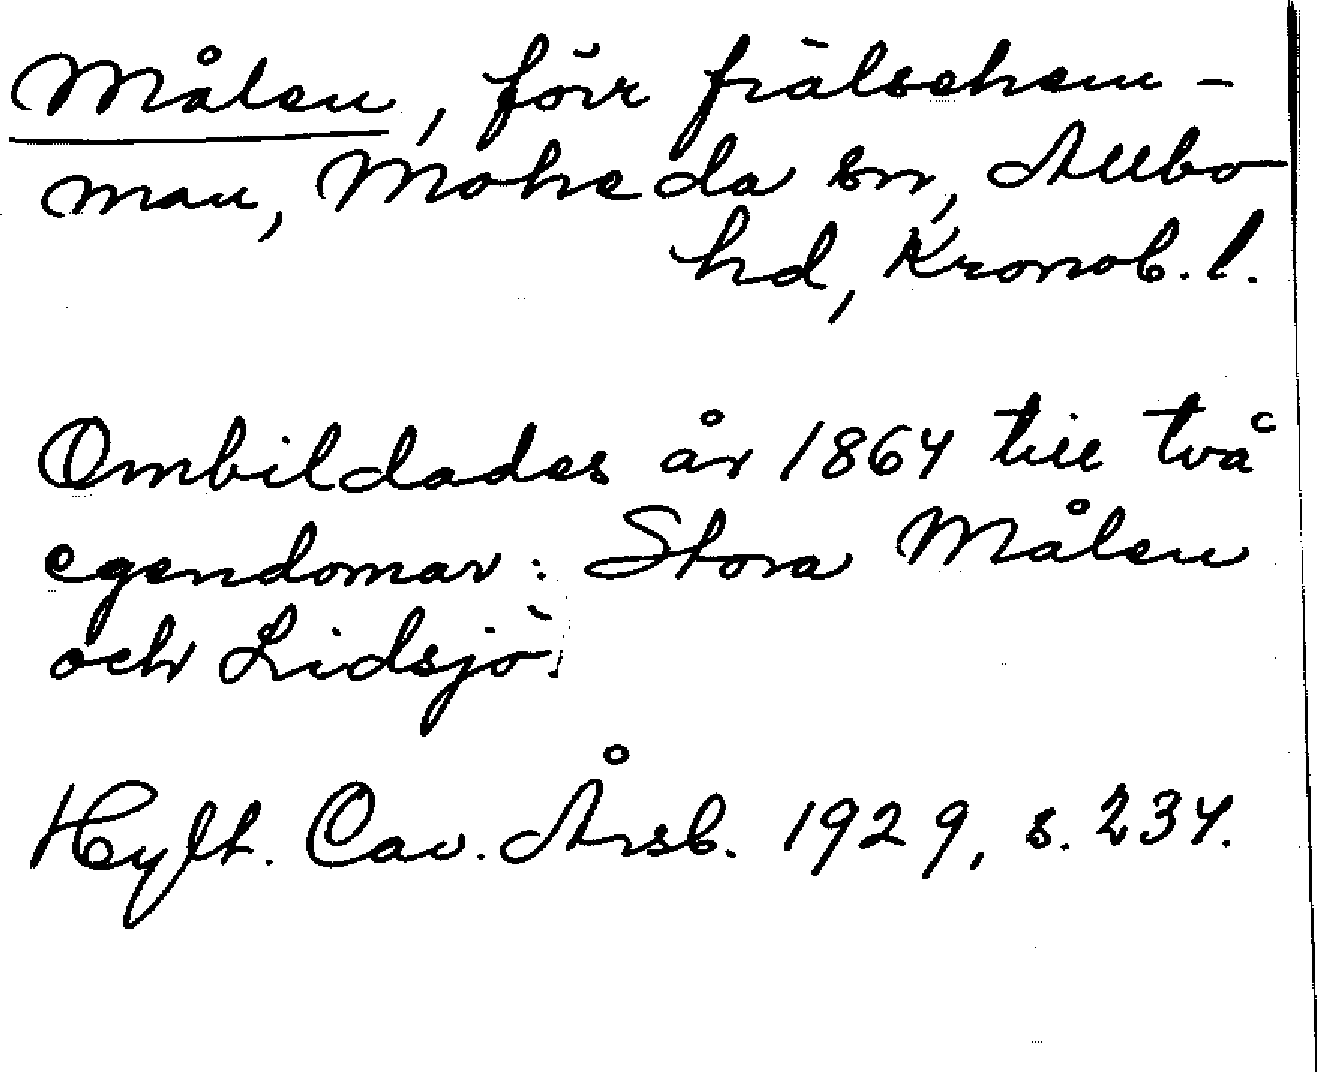 Målen, förr frälsehem-
man, Moheda sn, Allbo
hd, Kronob. l.
Ombildades år 1864 till två
egendomar: Stora Målen
och Lidsjö.
Hylt. Cav. Årsb. 1929, s. 234.